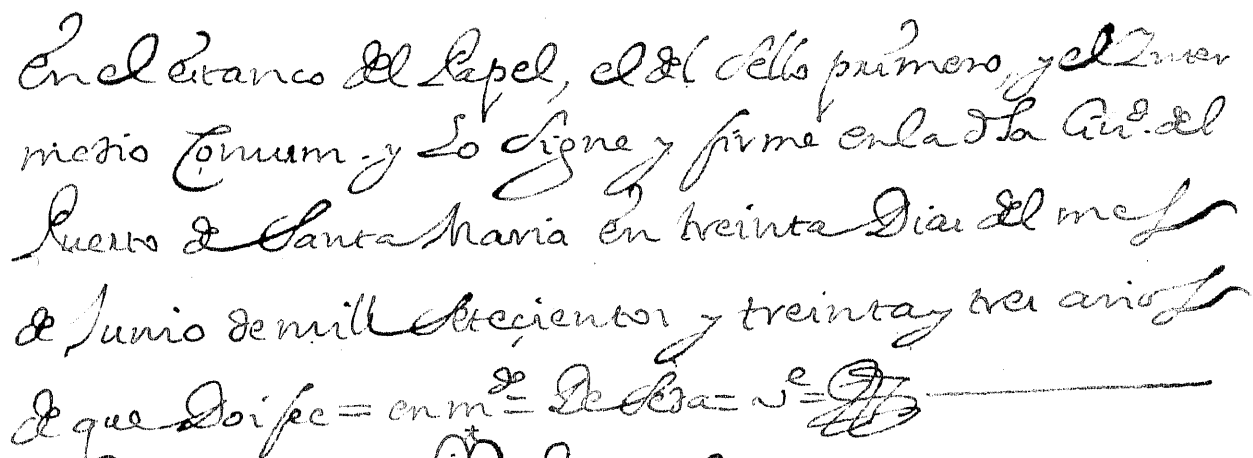 en el estanco del Papel, el del sello primero, y el Ynter
medio Comum. y Lo signe y firme en la dha Ciud. del
Puerto de Santa Maria en treinta Dias del mes
de Junio de mill setecientos y treinta y tres años
de que Doi fee = en mdo = De seda = ve =